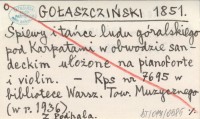 GOŁASZCZIŃSKI 1851.
Śpiewy i tańce ludu góralskiego
pod Karpatami w obwodzie san-
deckim ułożone na pianoforte
i violin. – Rps nr 7695 w
bibliotece Warsz. Tow. Muzycznego
(w r. 1936)
Z Podhala.